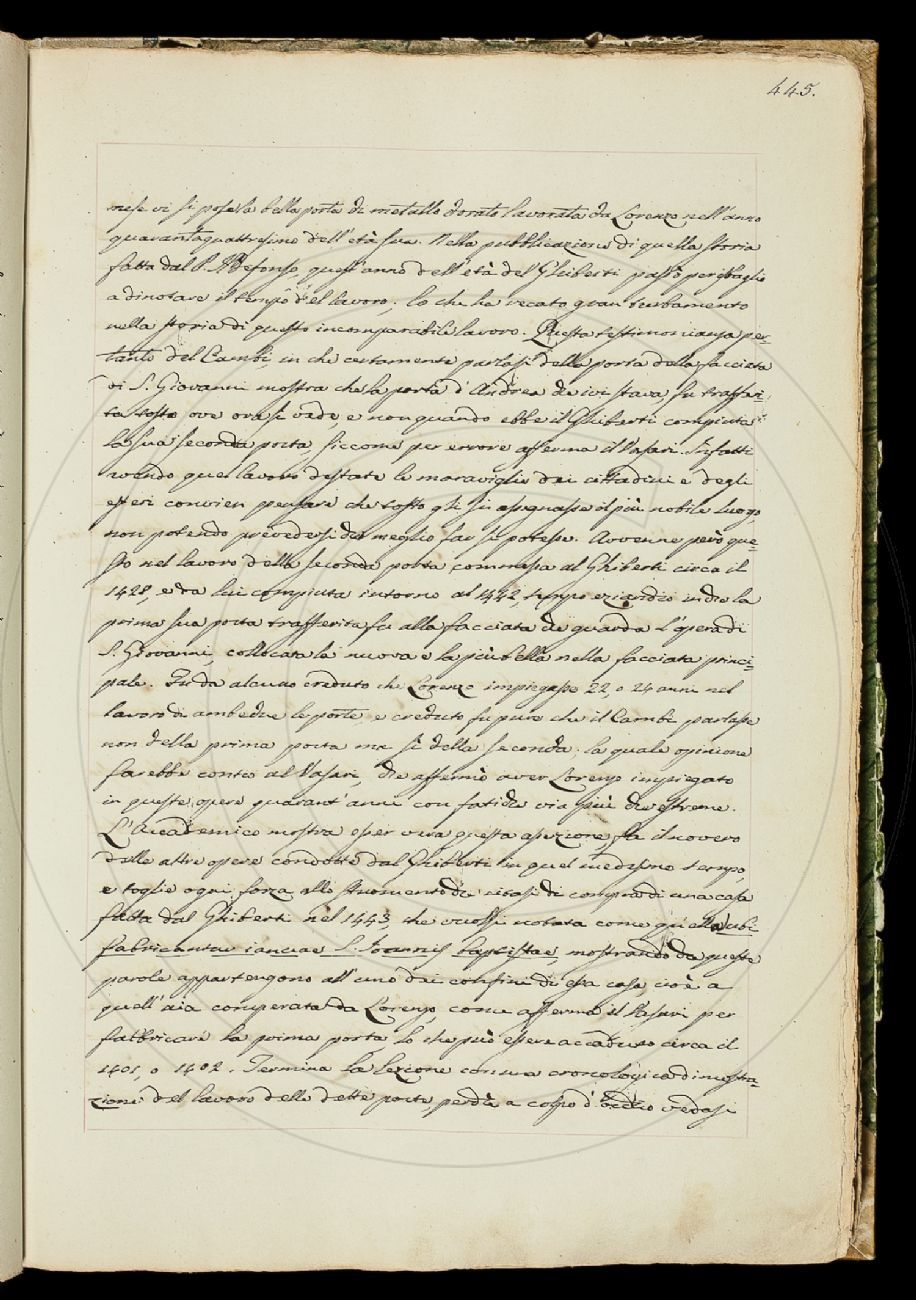 445.
nese vi si pose la bella porta di metallo dorato lavorata da Lorenzo nell'anno
quarantaquattresimo dell'età sua. Nella pubblicazione di quella storia
fatta dal P. Ildefonso, quest'anno dell'età del Ghiberti passò per isbaglio
a dinotare il tempo del lavoro; lo che ha recato gran turbamento
nella storia di questo incomparabile lavoro. Questa testimonianza per-
tanto del Cambi, in che certamente parlasi della porta della facciata
di S. Giovanni mostra che la porta d'Andrea che ivi stava fu trasferi-
ta tosto ove ora si vede, e non quando ebbe il Ghiberti compiuta
la sua seconda porta, siccome per errore afferma il Vasari. Infatti
avendo quel lavoro destate le maraviglie dei cittadini e degli
esteri convien pensare che tosto gli si assegnasse il più nobile luogo,
non potendo prevedersi che meglio far si potesse. Avvenne però que-
sto nel lavoro della seconda porta, commessa al Ghiberti circa il
1428, e da lui compiuta intorno al 1442, tempo eziandio in che la
prima sua porta trasferita fu alla facciata che guarda l'opera di
S. Giovanni, collocata la nuova e la più bella nella facciata princi-
pale. Fu da alcuno creduto che Lorenzo impiegasse 22 o 24 anni nel
lavoro di ambedue le porte, e creduto fu pure che il Cambi parlasse
non della prima porta ma sì della seconda: la quale opinione
sarebbe contro al Vasari, che affermò aver Lorenzo impiegato
in queste opere quarant'anni con fatiche via più che estreme.
L'Accademico mostra esser vera questa asserzione, fa il novero
delle altre opere condotte dal Ghiberti in quel medesimo tempo,
e toglie ogni forza allo strumento che citasi di compra di una casa
fatta dal Ghiberti nel 1443, che vuolsi notata come quella ubi
fabricantur ianuae S. Joannis Baptistae, mostrando che queste
parole appartengono all'uno dei confini di essa casa, cioè a
quell'aia comperata da Lorenzo, come afferma il Vasari per
fabbricare la prima porta, lo che può essere accaduto circa il
1401, o 1402. Termina la Lezione con una cronologica dimostra-
zione del lavoro delle dette porte, perchè a colpo d'occhio vedasi